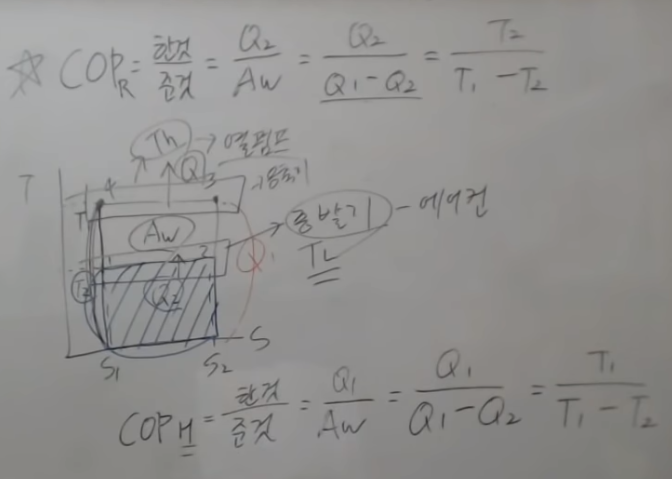 ☆ COP_R = 한것/준것 = Q₂/AW = Q₂/(Q₁-Q₂) = T₂/(T₁-T₂)
Th → 열펌프
T
4
Q
3
AW
증발기 - 에어컨
2
Q
T₂
Q₂
TL
S
S₁
S₂
COP_H = 한것/준것 = Q₁/AW = Q₁/(Q₁-Q₂) = T₁/(T₁-T₂)